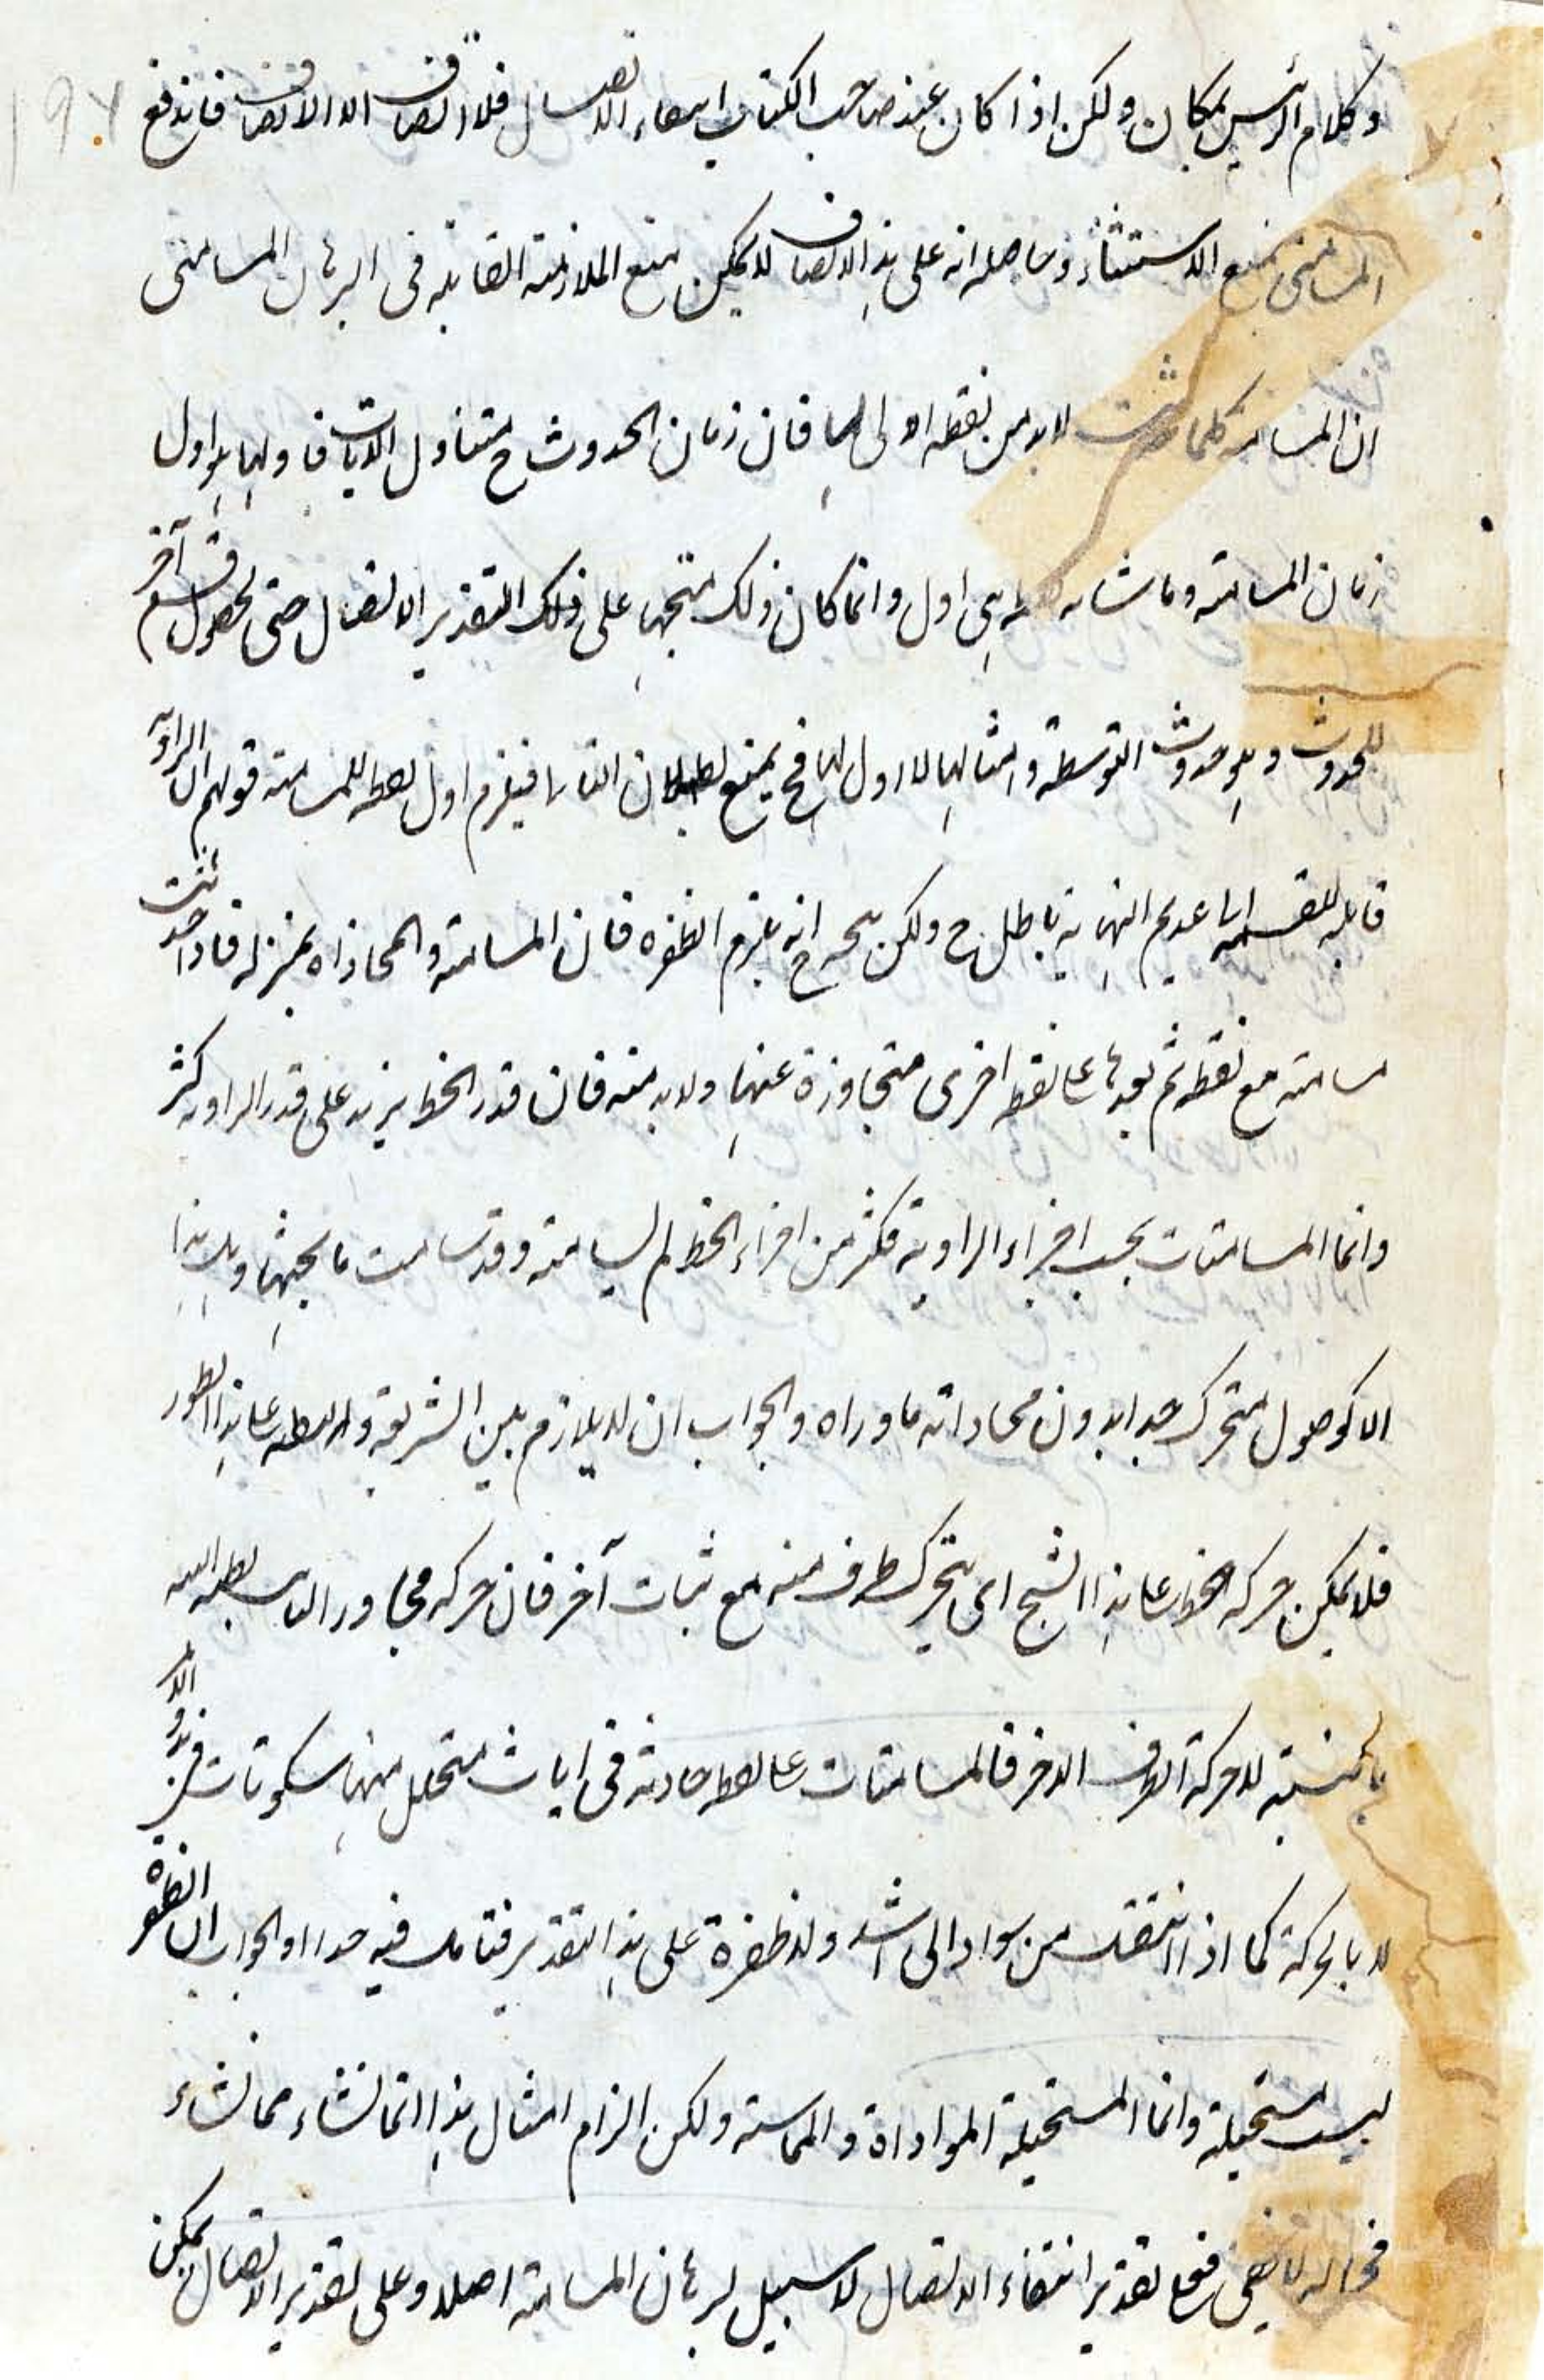 وكلام الرئيس بمكان ولكن اذا كان عند صاحب الكتاب انتفاء الاتصال فلا اتصاف الا الاتصاف فاندفع
المسامتى بمنع الاستثناء وحاصله انه على هذا الاتصاف لا يمكن منع الملازمة القابلة فى البرهان المسامتى
ان المسامتة كلما حدثت لا بد من نقطة اولى لها فان زمان الحدوث ح متناول الانات فاولها هو اول
زمان المسامتة وما شابه هى اول وانما كان ذلك متجها على ذلك التقدير الاتصال حتى يحصل قسم آخر
للحدوث وهو حدوث التوسطية وامثالها لا اول لها فح يمنع بطلان فيلزم اول نقطة للمسامتة قولهم ان الزاوية
قابلة للقسمة عديم النهاية باطل ح ولكن يتجه ح انه يلزم الطفرة فان المسامتة والمحاذاة بمنزلة فاذا حدثت
مسامتة مع نقطة ثم بعدها على نقطة اخرى متجاوزة عنها ولا بد منه فان قدر الخط يزيد على قدر الزاوية كثر
وانما المسامتات بحسب اجزاء الزاوية فكثر من اجزاء الخط لم يسامته وقد سامت ما بجنبها وهل هذا
الا كوصول متحرك حدا بدون محاذاته ما وراه والجواب ان لا يلازم بين الشريفة و على هذا الطور
فلا يمكن حركة الخط على هذا الشبح اى يتحرك طرف منه مع ثبات آخر فان حركة مجاور
بالنسبة لا حركة الطرف الاخر فالمسامتات على نقطة حادثة فى انات متخلل منها سكونات
لا بالحركة كما اذا انتقل من سواد الى اشد ولا طفرة على هذا التقدير فتامل فيه جدا والجواب ان الطفرة
ليست مستحيلة وانما المستحيلة الموازاة والمماسة ولكن الزام امثال هذا انما نشاء مما نشاء
فح اله لا فعلى تقدير انتفاء الاتصال لا سبيل لبرهان المسامتة اصلا وعلى تقدير الاتصال يمكن